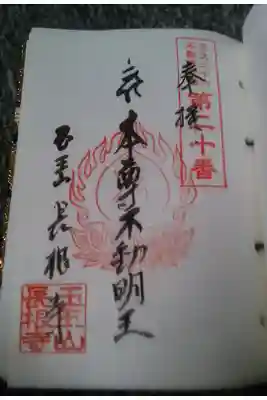 第二十番
奉拝
本尊不動明王
長根寺
玉王山
長根寺